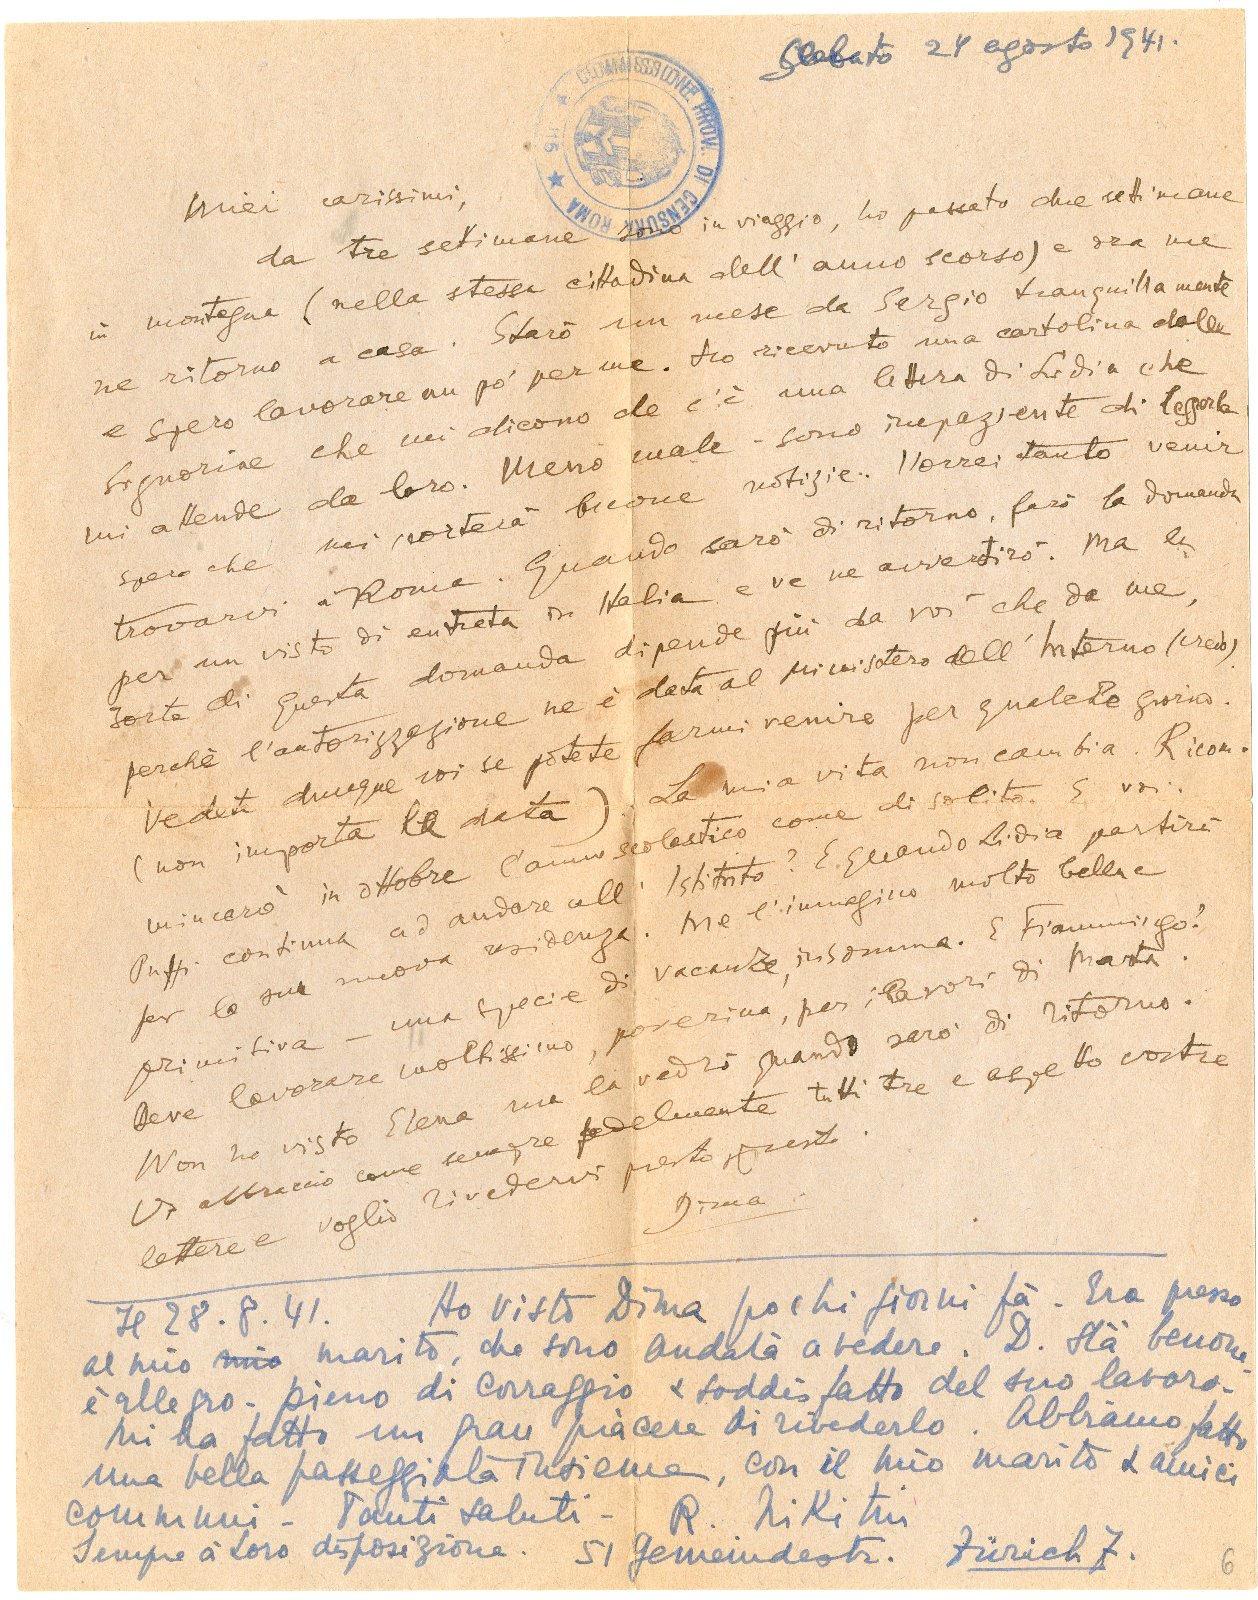 Sabato 24 agosto 1941.
COMMISSIONE PROV. DI CENSURA ROMA
115
Miei carissimi,
da tre settimane sono in viaggio, ho passato due settimane
in montagna (nella stessa cittadina dell' anno scorso) e ora me
ne ritorno a casa. Starò un mese da Sergio tranquillamente
e spero lavorare un pò' per me. Ho ricevuto una cartolina dalle
Signorine che mi dicono che c'è una lettera di Lidia che
mi attende da loro. Meno male - sono impaziente di leggerla
spero che mi porterà buone notizie. Vorrei tanto venir
trovarvi a Roma. Quando sarò di ritorno, farò la domanda
per un visto di entrata in Italia e ve ne avvertirò. Ma la
sorte di questa domanda dipende più da voi che da me,
perchè l'autorizzazione ne è data al Ministero dell' Interno (credo)
Vedete dunque voi se potete farmi venire per qualche giorno.
(non importa la data). La mia vita non cambia. Ricom-
mincerò in ottobre l'anno scolastico come di solito. E voi.
Puffi continua ad andare all' Istituto? E quando Lidia partirà
per la sua nuova residenza. Me l'immagino molto bella e
primitiva - una specie di vacanze, insomma. E Fiammingo?
Deve lavorare moltissimo, poverina, per i lavori di Marta.
Non ho visto Elena ma la vedrò quando sarò di ritorno.
Vi abbraccio come sempre fedelmente tutti tre e aspetto vostre
lettere e voglio rivedervi presto presto.
Dima
Il 28.8.41. Ho visto Dima pochi giorni fà. Era presso
al mio mio marito, che sono andata a vedere. D. stà benone
è allegro - pieno di corraggio & soddisfatto del suo lavoro -
Mi ha fatto un gran piacere di rivederlo. Abbiamo fatto
una bella passeggiata insieme, con il mio marito & amici
communi - Tanti saluti - R. Nikitin
Sempre a Loro disposizione. 51 Gemeindestr. Zürich 7.
6